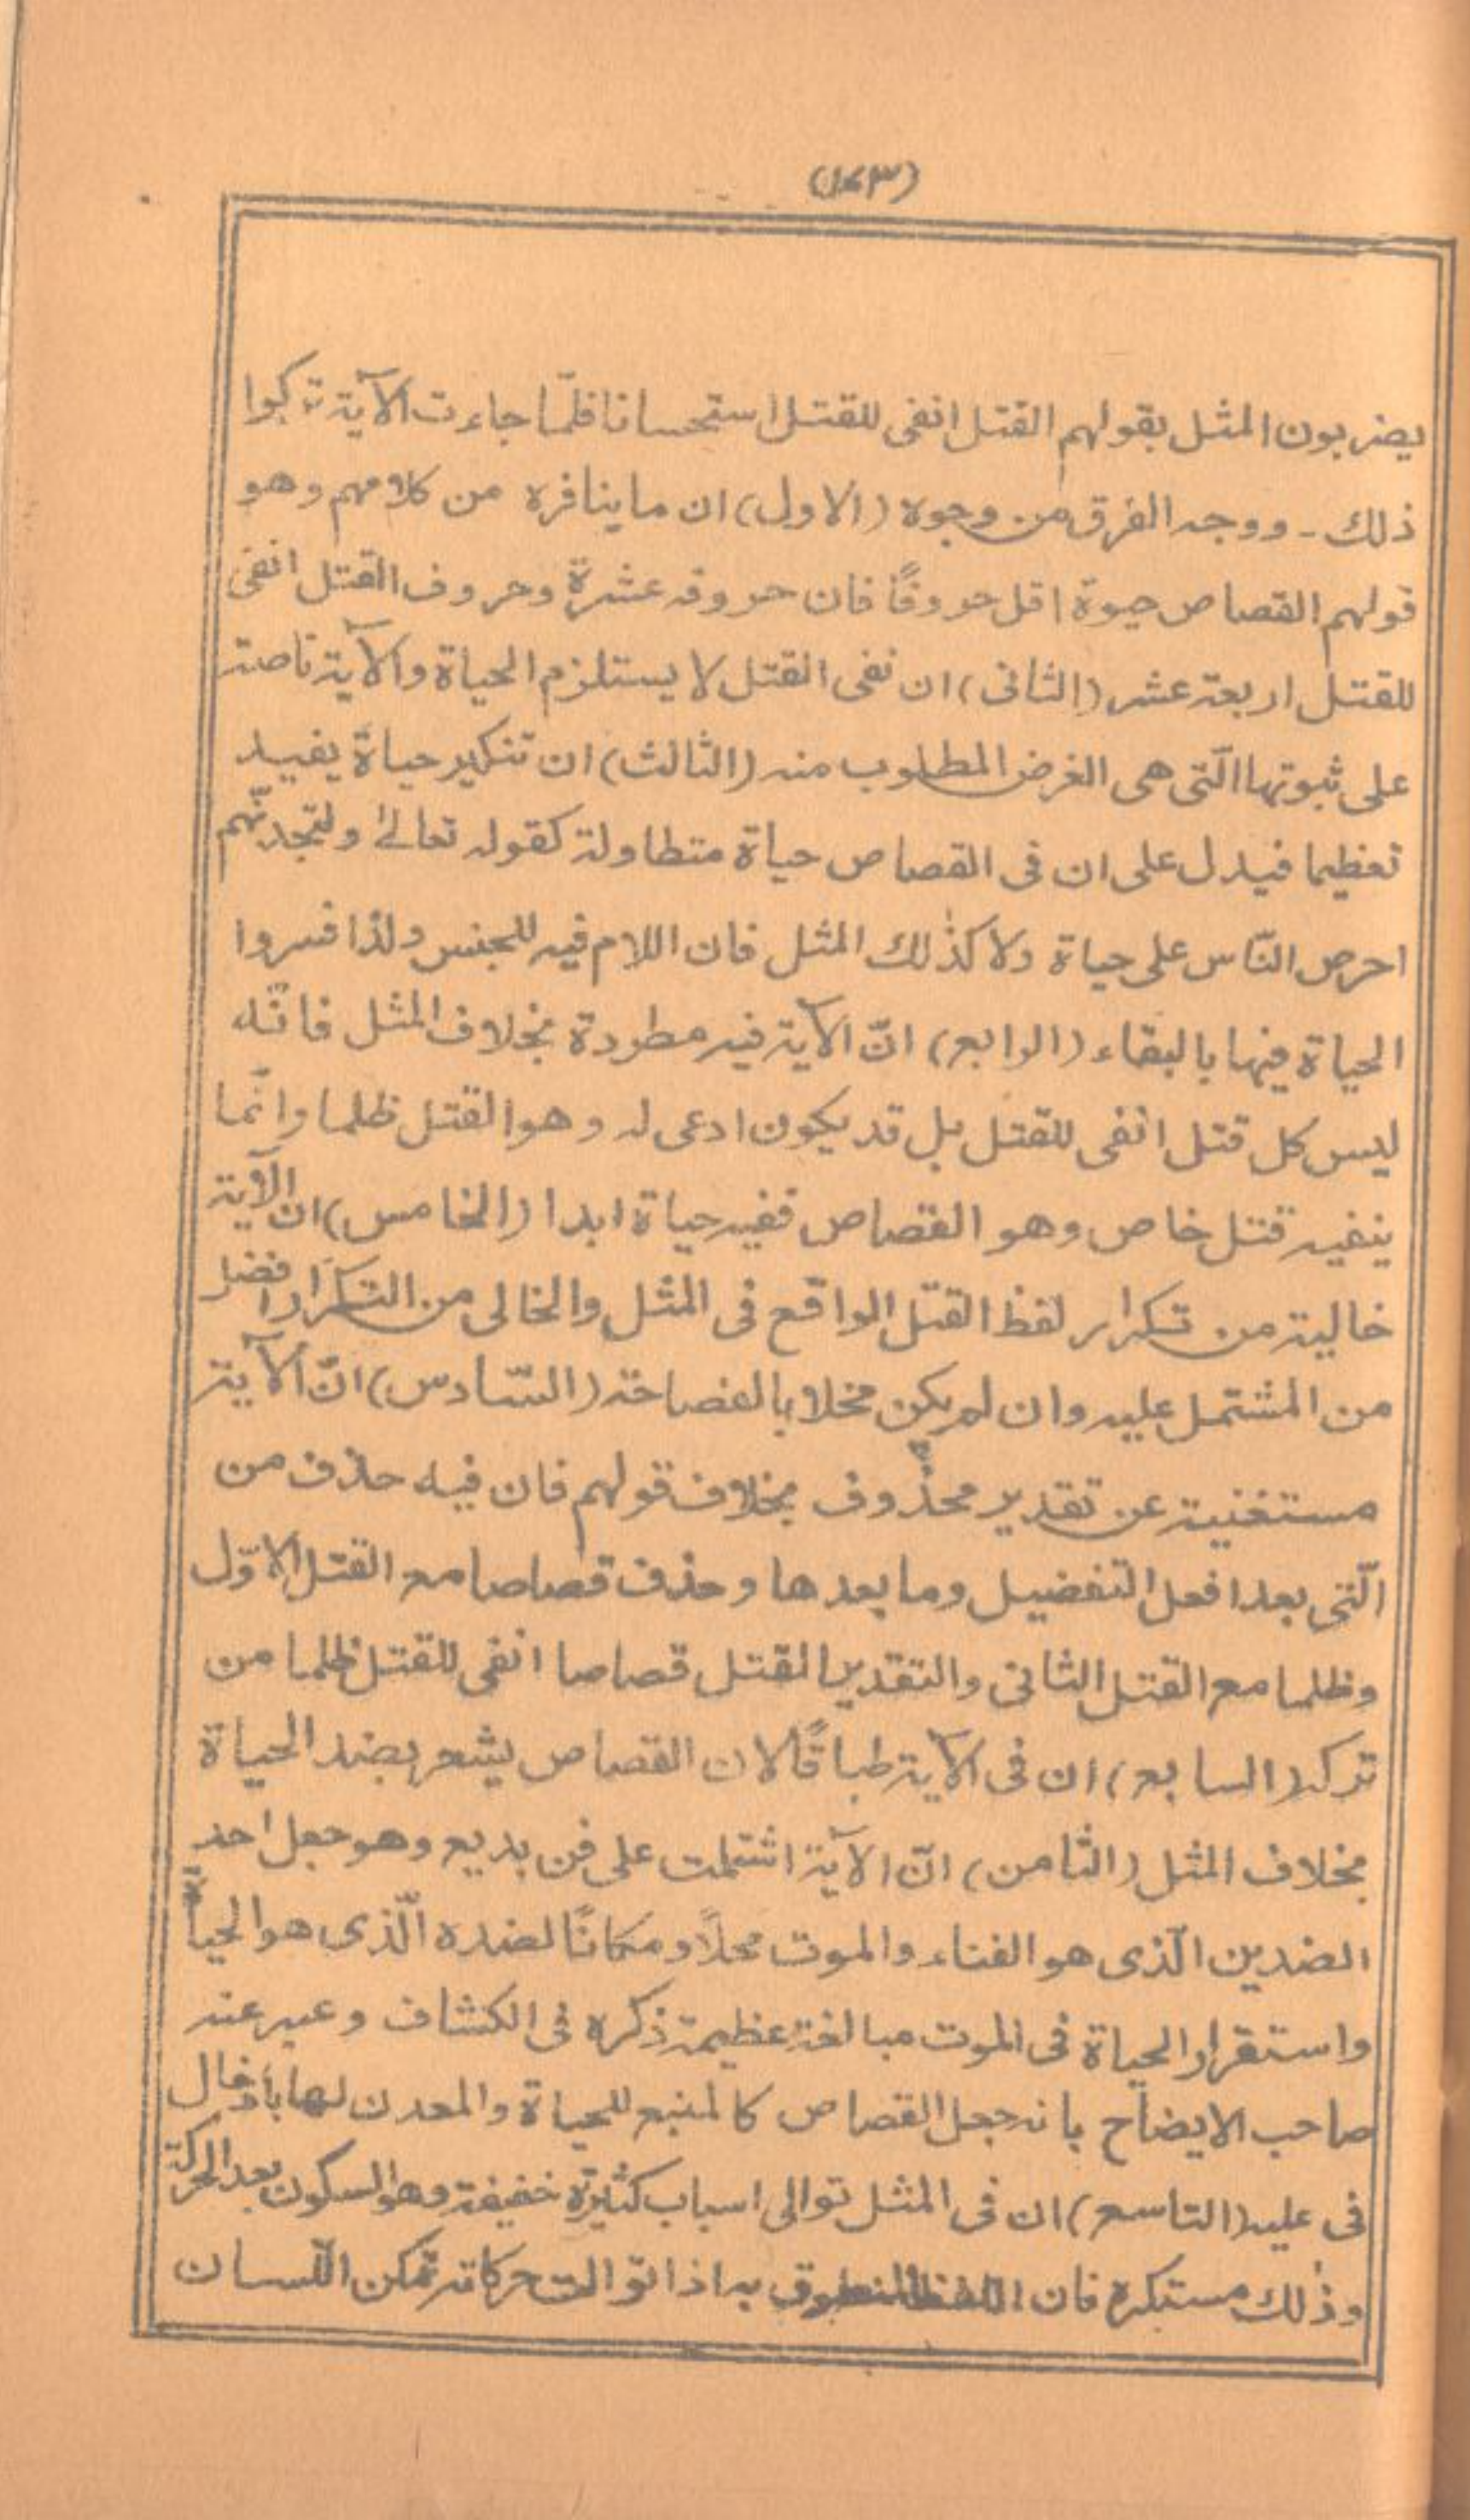 (١٤٣)
يضربون المثل بقولهم القتل انفى للقتل استحسانا فلمّا جاءت الآية تركوا
ذلك - ووجه الفرق من وجوه (الاول) ان ما ينافره من كلامهم وهو
قولهم القصاص حيوة اقل حروفًا فان حروفه عشرة وحروف القتل انفى
للقتل اربعة عشر (الثانى) ان نفى القتل لا يستلزم الحياة والآية ناصة
على ثبوتها الّتى هى الغرض المطلوب منه (الثالث) ان تنكير حياة يفيد
تعظيما فيدل على ان فى القصاص حياة متطاولة كقوله تعالىٰ ولتجدنّهم
احرص النّاس على حياة ولا كذٰلك المثل فان اللام فيه للجنس ولذا فسروا
الحياة فيها بالبقاء (الرابع) انّ الآية فيه مطردة بخلاف المثل فانّه
ليس كل قتل انفى للقتل بل قد يكون ادعى له وهو القتل ظلما وانّما
ينفيه قتل خاص وهو القصاص ففيه حياة ابدا (الخامس) ان الآية
خالية من تكرار لفظ القتل الواقع فى المثل والخالى من التكرار افضل
من المشتمل عليه وان لم يكن مخلا بالفصاحة (السّادس) انّ الآية
مستغنية عن تقدير محذوف بخلاف قولهم فان فيه حذف من
الّتى بعد افعل التفضيل وما بعدها وحذف قصاصا مع القتل الاوّل
وظلما مع القتل الثانى والتقدير القتل قصاصا انفى للقتل ظلما من
تركه (السابع) ان فى الآية طباقًا لان القصاص يشعر بضد الحياة
بخلاف المثل (الثامن) انّ الآية اشتملت على فن بديع وهو جعل احد
الضدين الّذى هو الفناء والموت محلاً ومكانًا لضده الّذى هو الحياة
واستقرار الحياة فى الموت مبالغة عظيمة ذكره فى الكشاف وعبر عنه
صاحب الايضاح بانه جعل القصاص كالمنبع للحياة والمعدن لها بأدخال
فى عليه (التاسع) ان فى المثل توالى اسباب كثيرة خفيفة وهو السكون بعد الحركة
وذٰلك مستكره فان اللفظ المنطوق به اذا توالت حركاته تمكن اللّسان